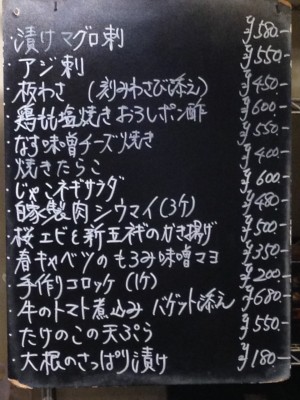 ・漬けマグロ刺 ¥580.-
・アジ刺 ¥550.-
・板わさ (刻みわさび添え) ¥450-
・鶏もも塩焼きおろしポン酢 ¥600.-
・なす味噌チーズ焼き ¥550.-
・焼きたらこ ¥400.-
・じゃこネギサラダ ¥600.-
・自家製肉シウマイ(3ケ) ¥480.-
・桜エビと新玉葱のかき揚げ ¥500.-
・春キャベツのもろみ味噌マヨ ¥350.-
・手作りコロッケ (1ケ) ¥200.-
・牛のトマト煮込み バゲット添え ¥680.-
・たけのこの天ぷら ¥550.-
・大根のさっぱり漬け ¥180.-